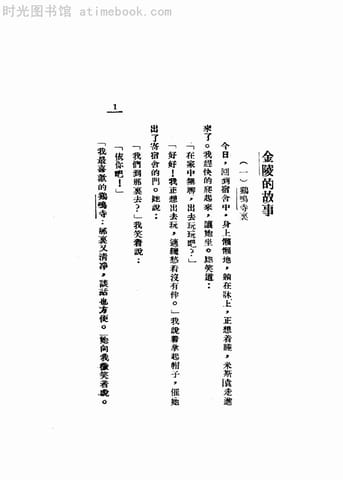 时光图书馆-atimebook.com
金陵的故事
(一)鷄鳴寺裏
今日,回到宿舍中,身上懶懶地,躺在牀上,正想着睡,米斯袁走進
來了。我趕快的爬起來,讓她坐。她笑道:
「在家中無聊,出去玩玩吧?」
「好好!我正想出去玩,這纔愁着沒有伴。」我說着拿起帽子,催她
出了寄宿舍的門。她說:
「我們到那裏去?」我笑着說:
「依你吧!」
「我最喜歡的鷄鳴寺:那裏又清凈,談話也方便。」她向我微笑着說。
1